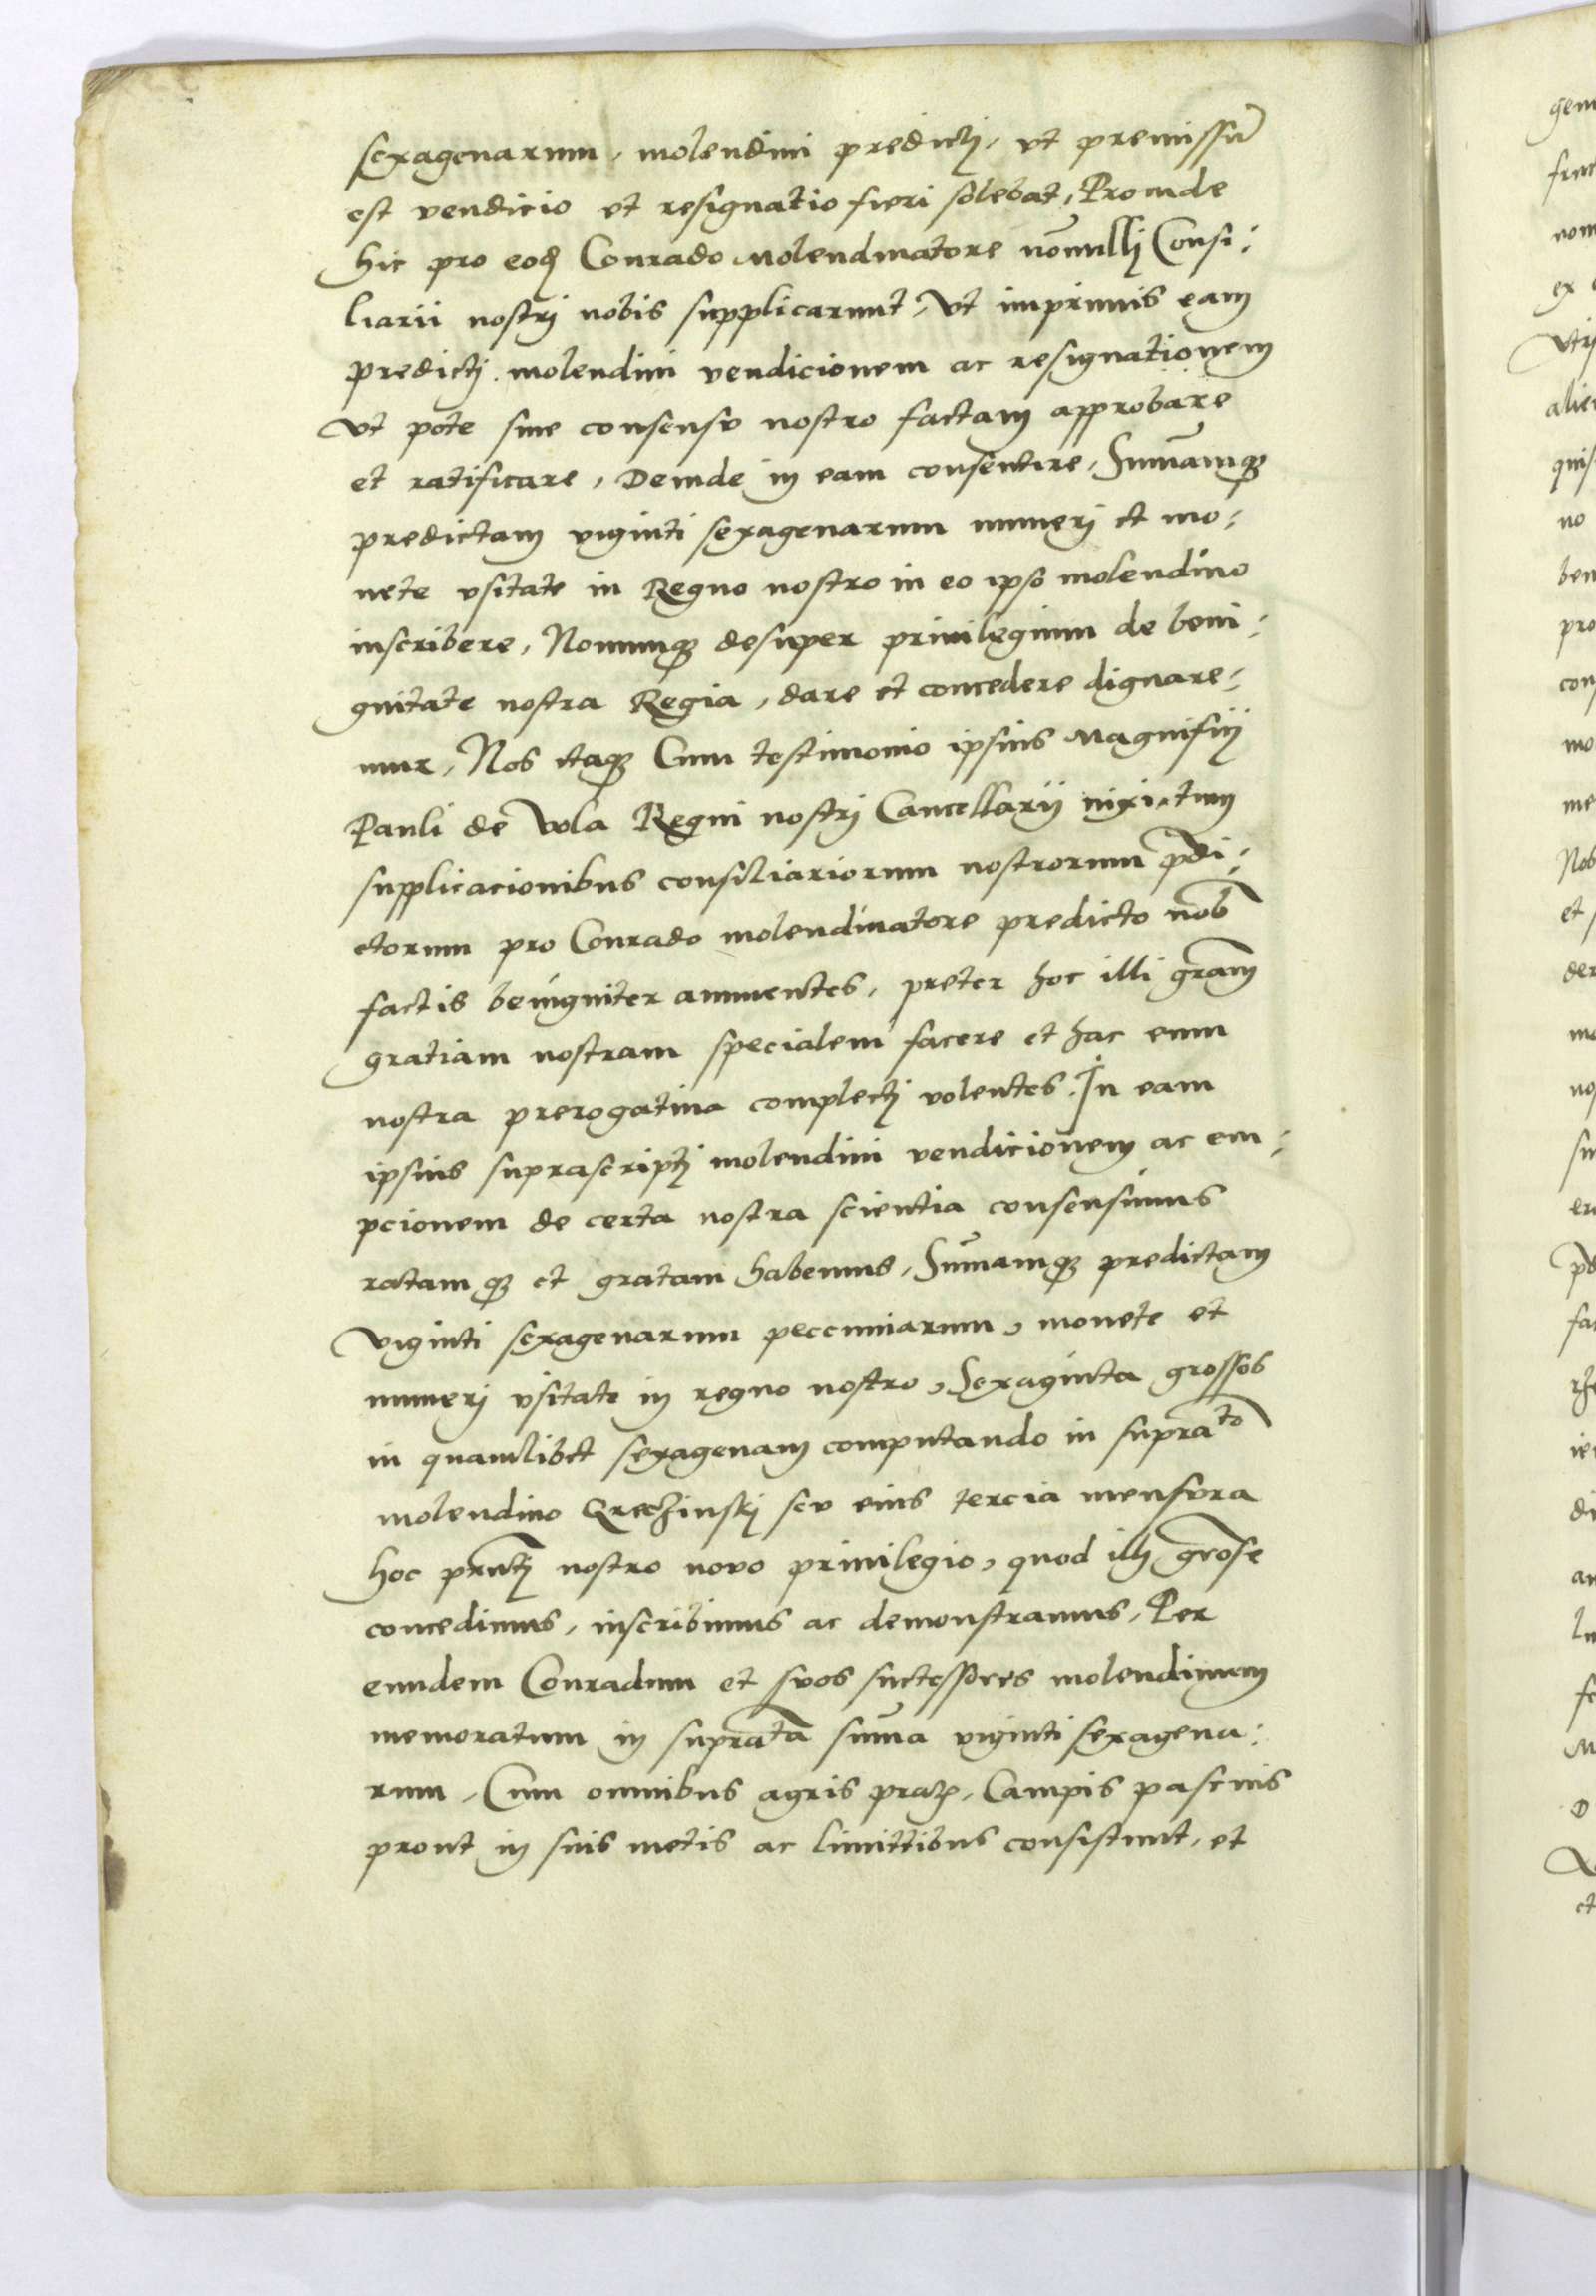 sexagenarum, molendini predicti, vt premissũ
est vendicio et resignatio fieri solebat, Proinde
hic pro eodẽ Conrado Molendinatore nõnulli Consi:
liarii nostrj nobis supplicarunt, Vt imprimis eam
predictj molendini vendicionem ac resignationem
Vt pote sine consensv nostro factam approbare
et ratificare, Deinde in eam consentire, Sum̃amq;
predictam viginti sexagenarum numerj et mo:
nete vsitate in Regno nostro in eo ipso molendino
inscribere, Nouumq; desuper priuilegium de beni:
gnitate nostra Regia, dare et concedere dignare:
mur, Nos itaq; Cum testimonio ipsius Magnificj
Pauli de Wola Regni nostrj Cancellarij nixi, tum
supplicacionibus consiliariorum nostrorum p̃di:
ctorum pro Conrado molendinatore predicto nob̃
factis benigniter annuentes, preter hoc illi gr̃am
gratiam nostram specialem facere et hac eum
nostra prerogatiua complectj volentes. In eam
ipsius suprascriptj molendini vendicionem ac em:
pcionem de certa nostra scientia consensimus
ratamq; et gratam habemus, Sum̃amq; predictam
viginti sexagenarum peccuniarum, monete et
numerj vsitate in regno nostro, Sexaginta grossos
in quamlibet sexagenam computando in supra^to
molendino Grechinskj sev eius tercia mensvra
hoc prñtj nostro novo priuilegio, quod illj gr̃ose
concedimus, inscribimus ac demonstramus, Per
eundem Conradum et svos successores molendinum
memoratum in supratã sum̃a viginti sexagena:
rum, Cum omnibus agris prat(is), Campis pascuis
prout in suis metis ac limittibus consistunt, et